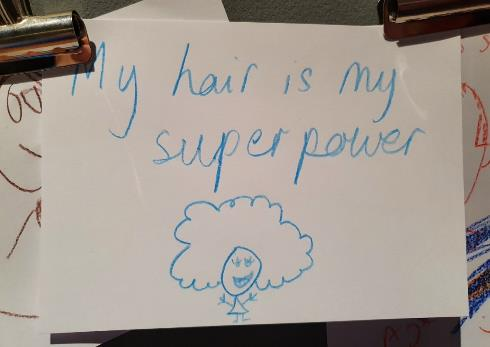 My hair is my
superpower